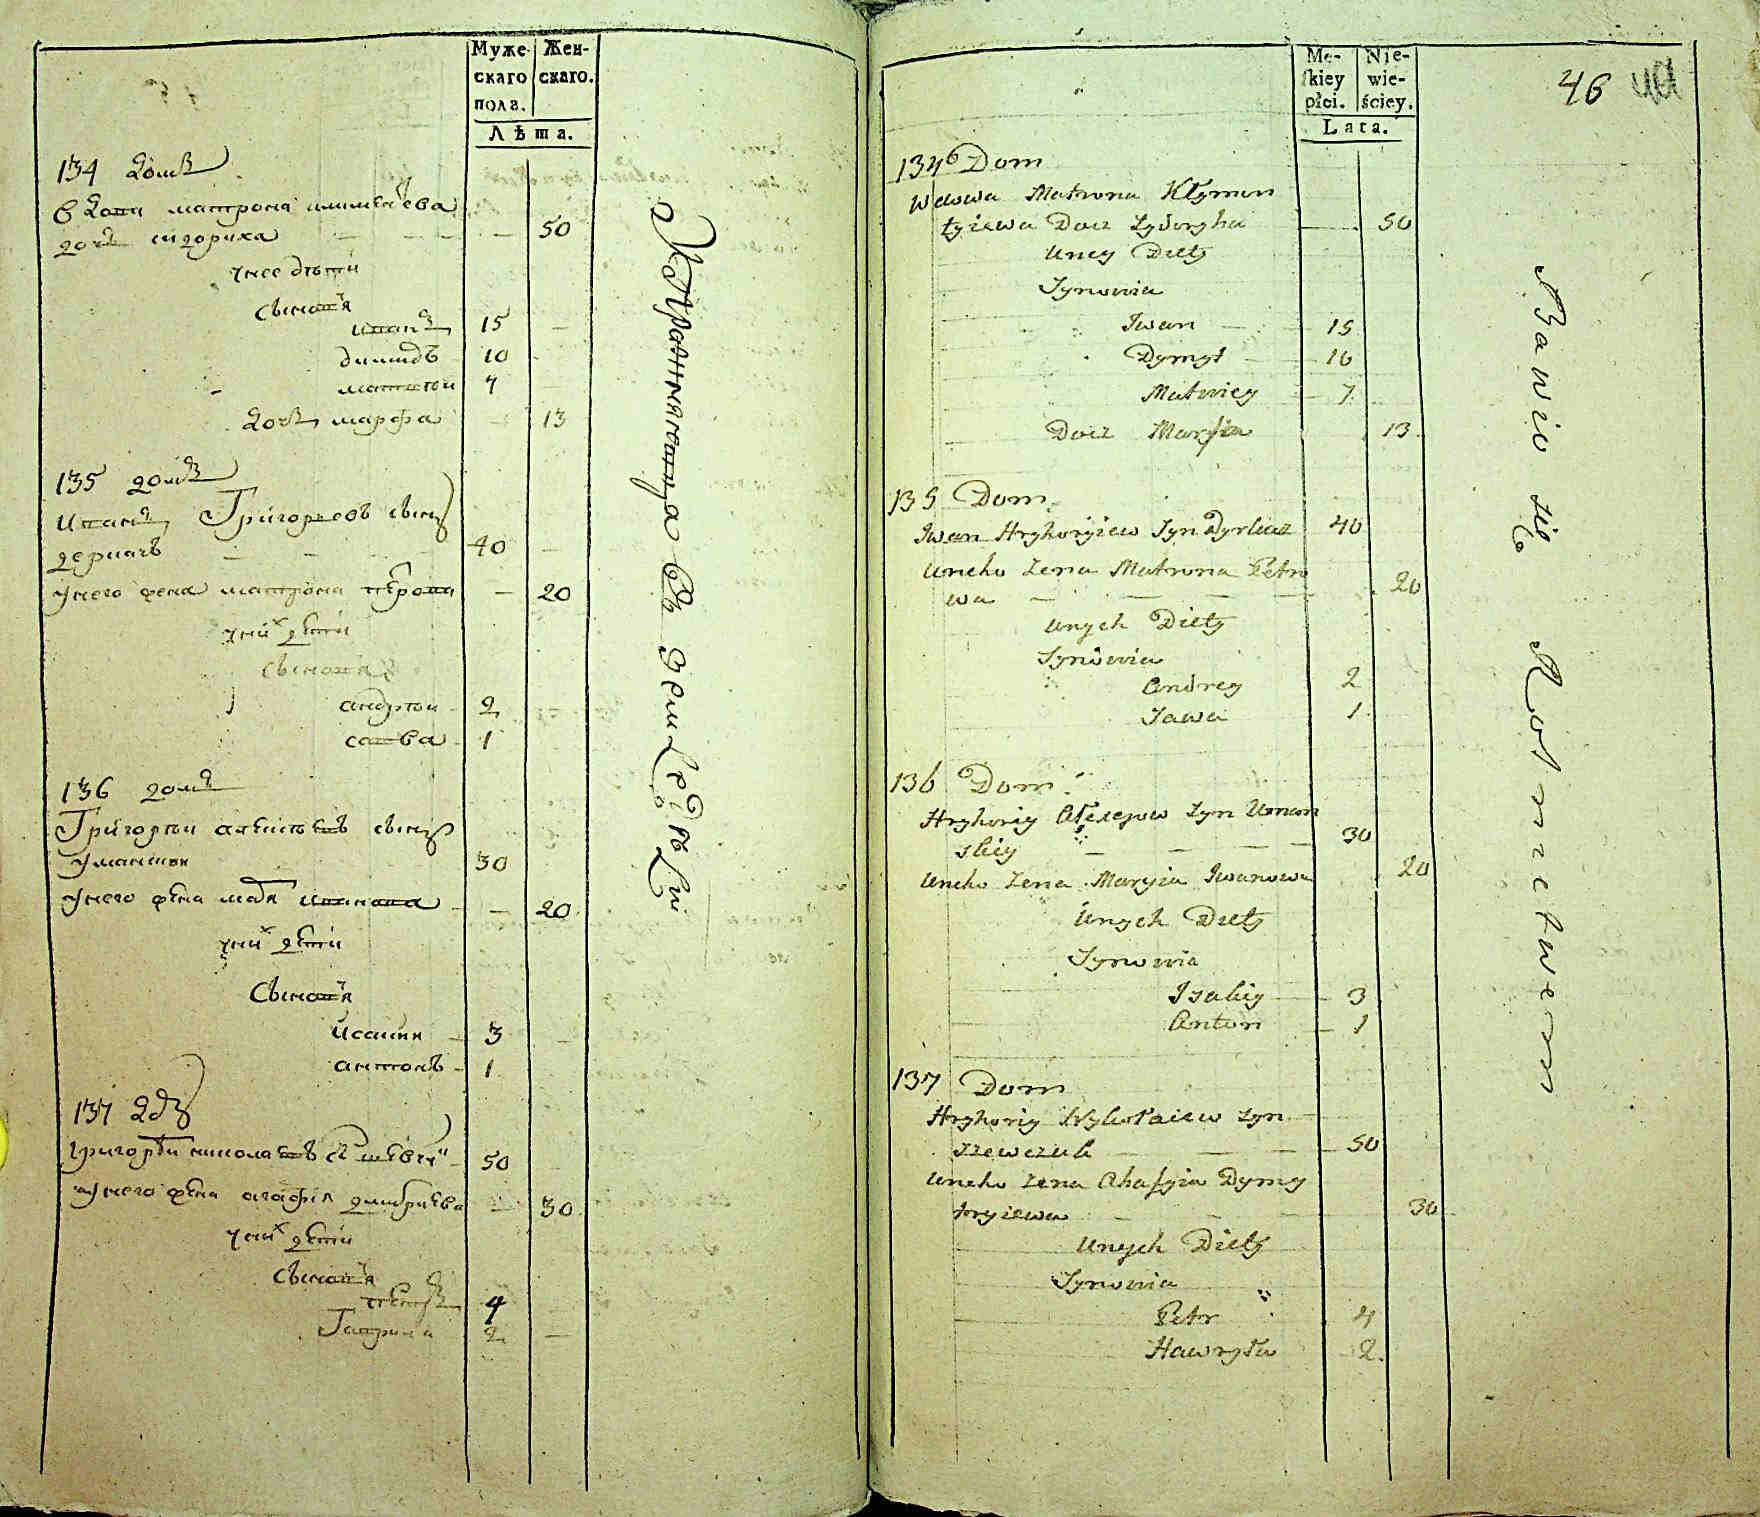 Муже-
скаго
пола.
Жен-
скаго.
Лѣта.
134 домъ
вдова матрона климентѣева
дочь сидориха — — — 50
унее дѣти
сыновя
иванъ 15 —
димидъ 10
матвѣи 7
дочь марфа 13
135 домъ
иванъ Григорьевъ сынъ
деркачъ — — — 40 —
унего жена матрона петрова — 20
уних дети
сыновя
андрѣи 2
савва 1
136 домъ
Григорѣи алексѣевъ сынъ
уманскии 30
унего жена мария иванова — 20
уних дети
Сыновя
Исакии 3
антонъ 1
137 д
григорѣи николаевъ с шевчук 50
унего жена агафия дмитриева 30
уних дети
сыновя
петръ 4
Гаврила 2 —
Упражняется въ земледѣлии
Mę-
skiey
płci.
Nie-
wie-
ściey.
Lata.
46
134 Dom
Wdowa Matrona Kłymen
tyiewa Docz Sydoryha 50
Uney Diety
Synowia
Iwan 15
Dymyd 10
Matwiey 7
Docz Marfa 13
135 Dom
Iwan Hryhoryiew Syn Dyrkacz 40
Uneho Zena Matrona Petro
wa — — — — 20
Unych Diety
Synowia
Andrey 2
Sawa 1
136 Dom
Hryhoriy Alexejew Syn Uman
skiy — — — — 30
Uneho Zena Maryia Iwanowa 20
Unych Diety
Synowia
Isakiy 3
Anton 1
137 Dom
Hryhoriy Mykołaiew Syn
Szewczuk — — — 50
Uneho Zena Ahafyia Dymy
tryiewa — — — 30
Unych Diety
Synowia
Petr 4
Hawryło 2
Bawio się Rolnictwem